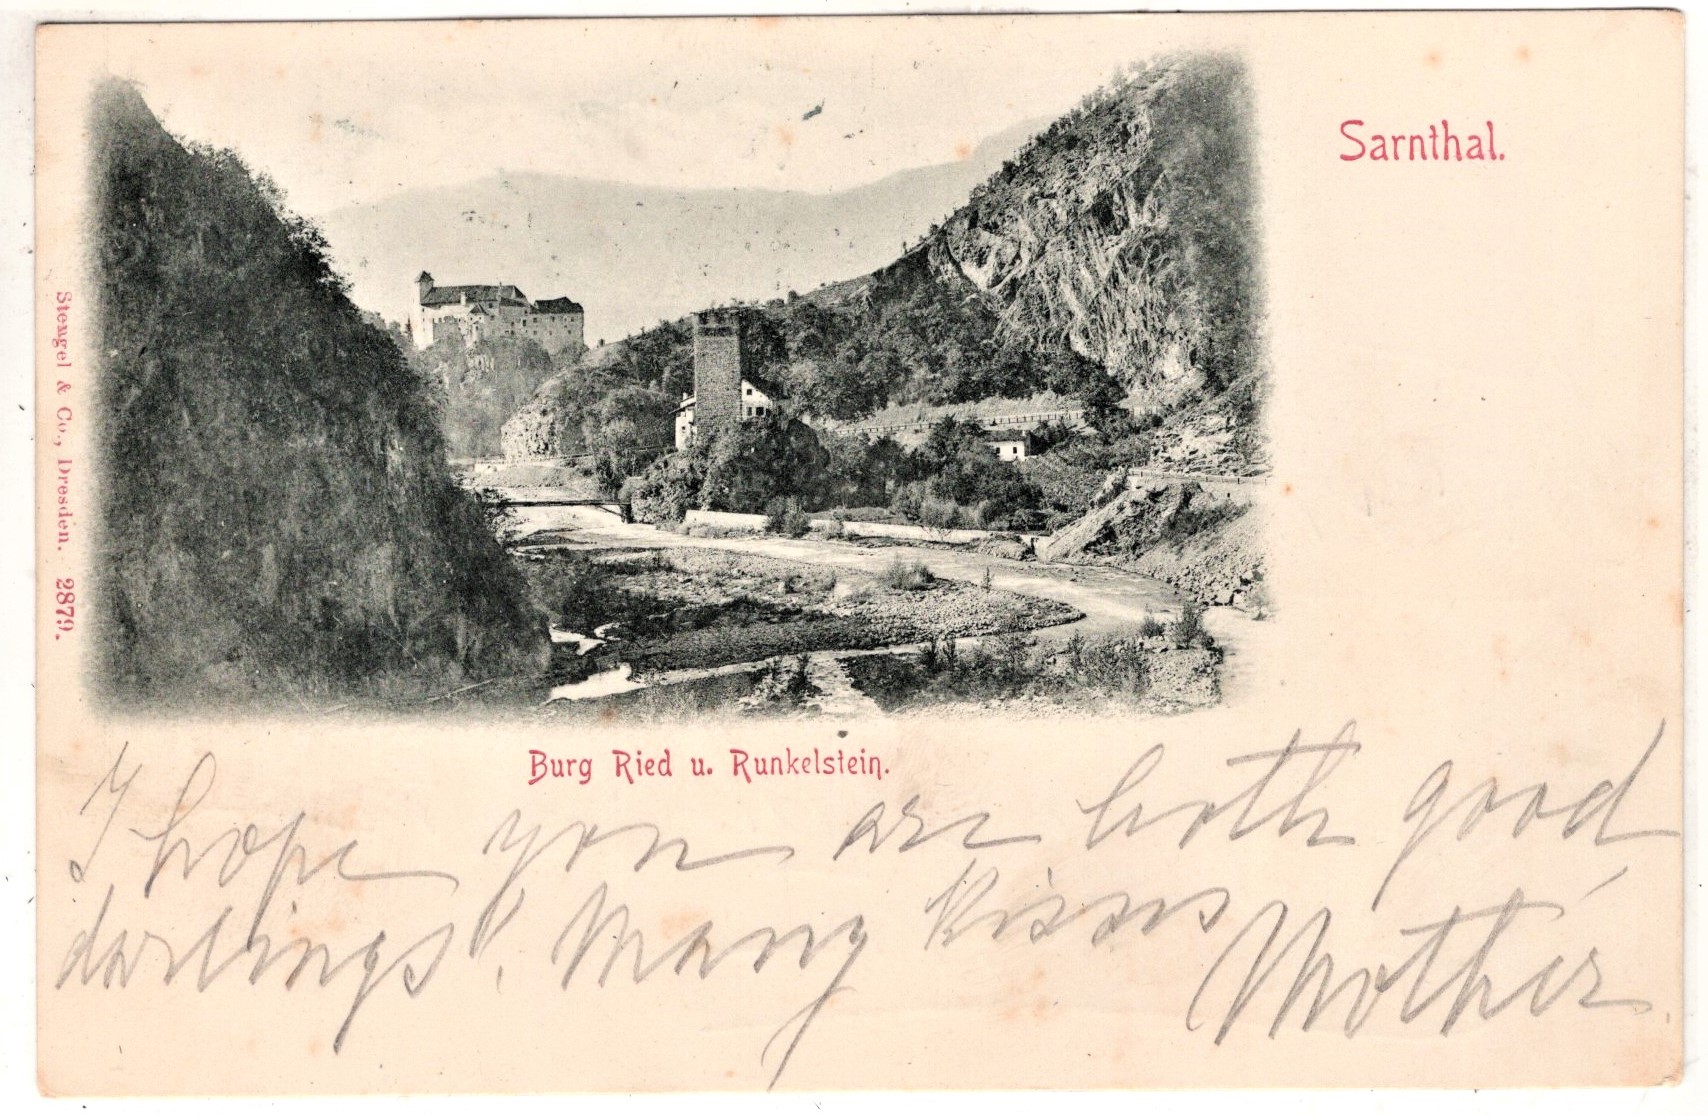 Sarnthal.
Stengel & Co., Dresden. 2879.
Burg Ried u. Runkelstein.
I hope you are both good
darlings!. Many kisses
Mother